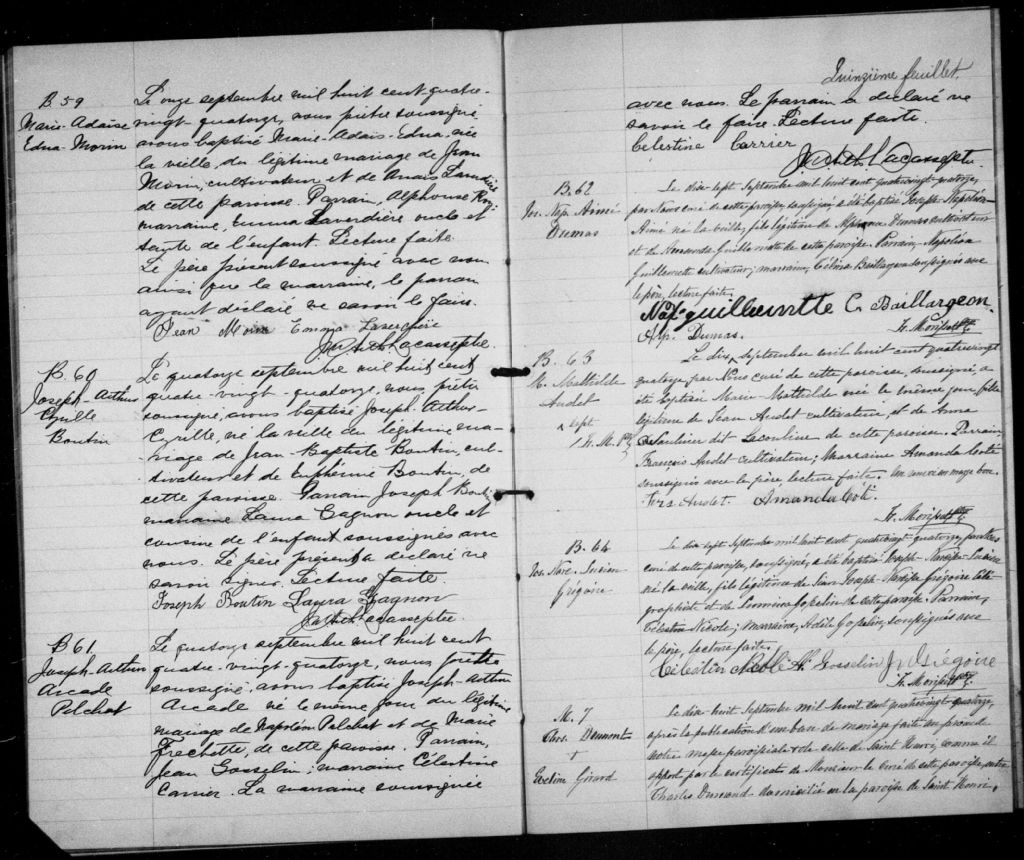 B 59
Marie-Adaïse
Edna Morin
Le onze septembre mil huit cent quatre-
vingt quatorze, nous prêtre soussigné
avons baptisé Marie-Adaïs-Edna, née
la veille, du légitime mariage de Jean
Morin, cultivateur et de Anaïs
de cette paroisse. Parrain, Alphonse Roy,
marraine, Emma Laverdière oncle et
tante de l'enfant. Lecture faite.
Le père présent soussigné avec nous
ainsi que la marraine, le parrain
ayant déclaré ne savoir le faire.
Jean Morin Emma Laverdière
Lacasse ptre.
B. 60
Joseph-Arthur
Cyrille
Boutin
Le quatorze septembre mil huit cent
quatre-vingt-quatorze, nous prêtre
soussigné, avons baptisé Joseph-Arthur-
Cyrille, né la veille du légitime ma-
riage de Jean-Baptiste Boutin, cul-
tivateur et de Euphémie Boutin, de
cette paroisse. Parrain Joseph Boutin
marraine Laura Gagnon oncle et
cousine de l'enfant soussignés avec
nous. Le père présent a déclaré ne
savoir signer. Lecture faite.
Joseph Boutin Laura Gagnon
Lacasse ptre.
B 61
Joseph-Arthur
Arcade
Pelchat
Le quatorze septembre mil huit cent
quatre-vingt-quatorze, nous prêtre
soussigné, avons baptisé Joseph-Arthur
Arcade né le même jour du légitime
mariage de Napoléon Pelchat et de Marie
Frechette, de cette paroisse. Parrain,
Jean Gosselin; marraine Célestine
Carrier. La marraine soussignée
Quinzième feuillet.
avec nous. Le parrain a déclaré ne
savoir le faire. Lecture faite.
Célestine Carrier
Lacasse ptre.
B. 62
Jos. Nap. Aimé
Dumas
Le dix-sept Septembre mil huit cent quatrevingt-quatorze,
par Nous curé de cette paroisse, soussigné a été baptisé Joseph-Napoléon-
Aimé né la veille, fils légitime de Alphonse Dumas cultivateur
et de Amanda Guillemette de cette paroisse. Parrain, Napoléon
Guillemette cultivateur; marraine, Célina Baillargeon soussignés avec
le père, lecture faite.
Nap. guillemette C. Baillargeon
Alp. Dumas.
B. 63
M. Mathilde
Audet
sept
Le dix septembre mil huit cent quatrevingt
quatorze, par Nous curé de cette paroisse, soussigné, a
été baptisée Marie Mathilde née le même jour, fille
légitime de Jean Audet cultivateur et de Anna
dit de cette paroisse. Parrain,
François Audet cultivateur; Marraine Amanda Coté
soussignés avec le père, lecture faite.
Frs Audet. Amanda Coté.
B. 64
Jos. Narc. Lucien
Grégoire
Le dix-sept Septembre mil huit cent quatrevingt quatorze, par Nous
curé de cette paroisse, soussigné, a été baptisé Joseph-Narcisse-Lucien
né la veille, fils légitime de Joseph-Narcisse Grégoire télé-
graphiste et de Gosselin de cette paroisse. Parrain,
Célestin Nicole; Marraine, Gosselin, soussignés avec
le père, lecture faite.
Célestin Nicole Gosselin J. N. Grégoire
M. 7
Chs. Dumont
+
Eveline Girard
Le dix-huit Septembre mil huit cent quatrevingt quatorze,
après la publication d'un ban de mariage faite au prône de
notre messe paroissiale & de celle de Saint Henri, comme il
appert par le certificat de Monsieur le curé de cette paroisse, entre
Charles Dumond domicilié en la paroisse de Saint Henri,